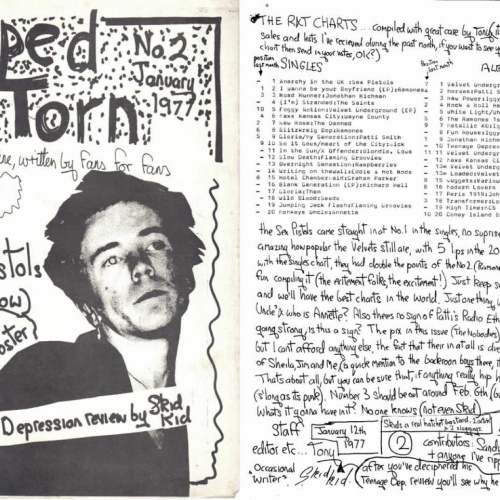 ped
Torn
No.2
January
1977
written by fans for fans
stols
ow)
oster
Depression review by Skid
Kid
THE R&T CHARTS ... compiled with great care by Tony
sales and lists I've recieved during the past month, if you want to see yo
chart then send in your votes, OK?)
position
last month
SINGLES
position
last month
AL
1 Anarchy in the UK:Sex Pistols
2 I wanna be your Boyfriend (EP):Ramones
3 Road Runner:Jonathan Richman
4 (I'm) Stranded:The Saints
5 Foggy Notion:Velvet Underground (EP)
6 Maxs Kansas City:Wayne County
7 New Rose:The Damned
8 Blitzkreig Bop:Ramones
9 Gloria/My Generation:Patti Smith
10 So it Goes/Heart of the City:Nick
11 In the Sun/X Offender:Blondie, Lowe
12 Slow Death:Flaming Groovies
13 Overnight Sensation:Raspberries
14 Writing on the Walls:Eddie & Hot Rods
15 Hotel Chamber:Graham Parker
16 Blank Generation (EP):Richard Hell
17 Gloria:Them
18 Wild Blood:Seeds
19 Jumping Jack Flash:Flaming Groovies
20 Monkeys Uncle:Annette
1 Velvet Underg
2 Horses:Patti S
3 New Power:Iggy
4 Rock & Roll H
5 White Light/Wh
6 The Ramones
7 Metallic KO:
8 Fun House:Iggy
9 Jonathan Richm
10 Teenage Depre
11 Velvet Underg
12 Maxs Kansas Ci
13 Loaded:Velvet
14 Velvet Underg
15 Nuggets:Variou
16 Modern Lovers
17 Paris 1919:Joh
18 Transformer:Lo
19 High Time:MC5
20 Coney Island B
the Sex Pistols came straight in at No.1 in the singles, no suprise
amazing how popular the Velvets still are, with 5 lps in the 20
with the singles chart, they had double the points of the No.2. (Ramon
fun compiling it (the exitement folks, the excitement!) Just keep su
and we'll have the best charts in the World. Just one thing,
Uncle"x who is Annette? Also theres no sign of Patti's Radio Eth
going strong, Is this a sign? The pix in this issue (The Nobodies)
but I cant afford anything else, the fact that their in at all is du
of Sheila, Jim and Me, (a quick mention to the backroom boys there,
That's about all, but you can be sure that, if anything really hip h
(s'long as its punk). Number 3 should be out around Feb. 6th (
Whats it gonna have in it? No one knows (not even Skid)
Staff
editor etc... Tony
"Occasional
Writer" Skid Kid
January 12th
1977
2
Skids a real hatchet
contributors: Sandy
+ anyone I've ripp
after you've deciphered his
Teenage Dep. review you'll see why he